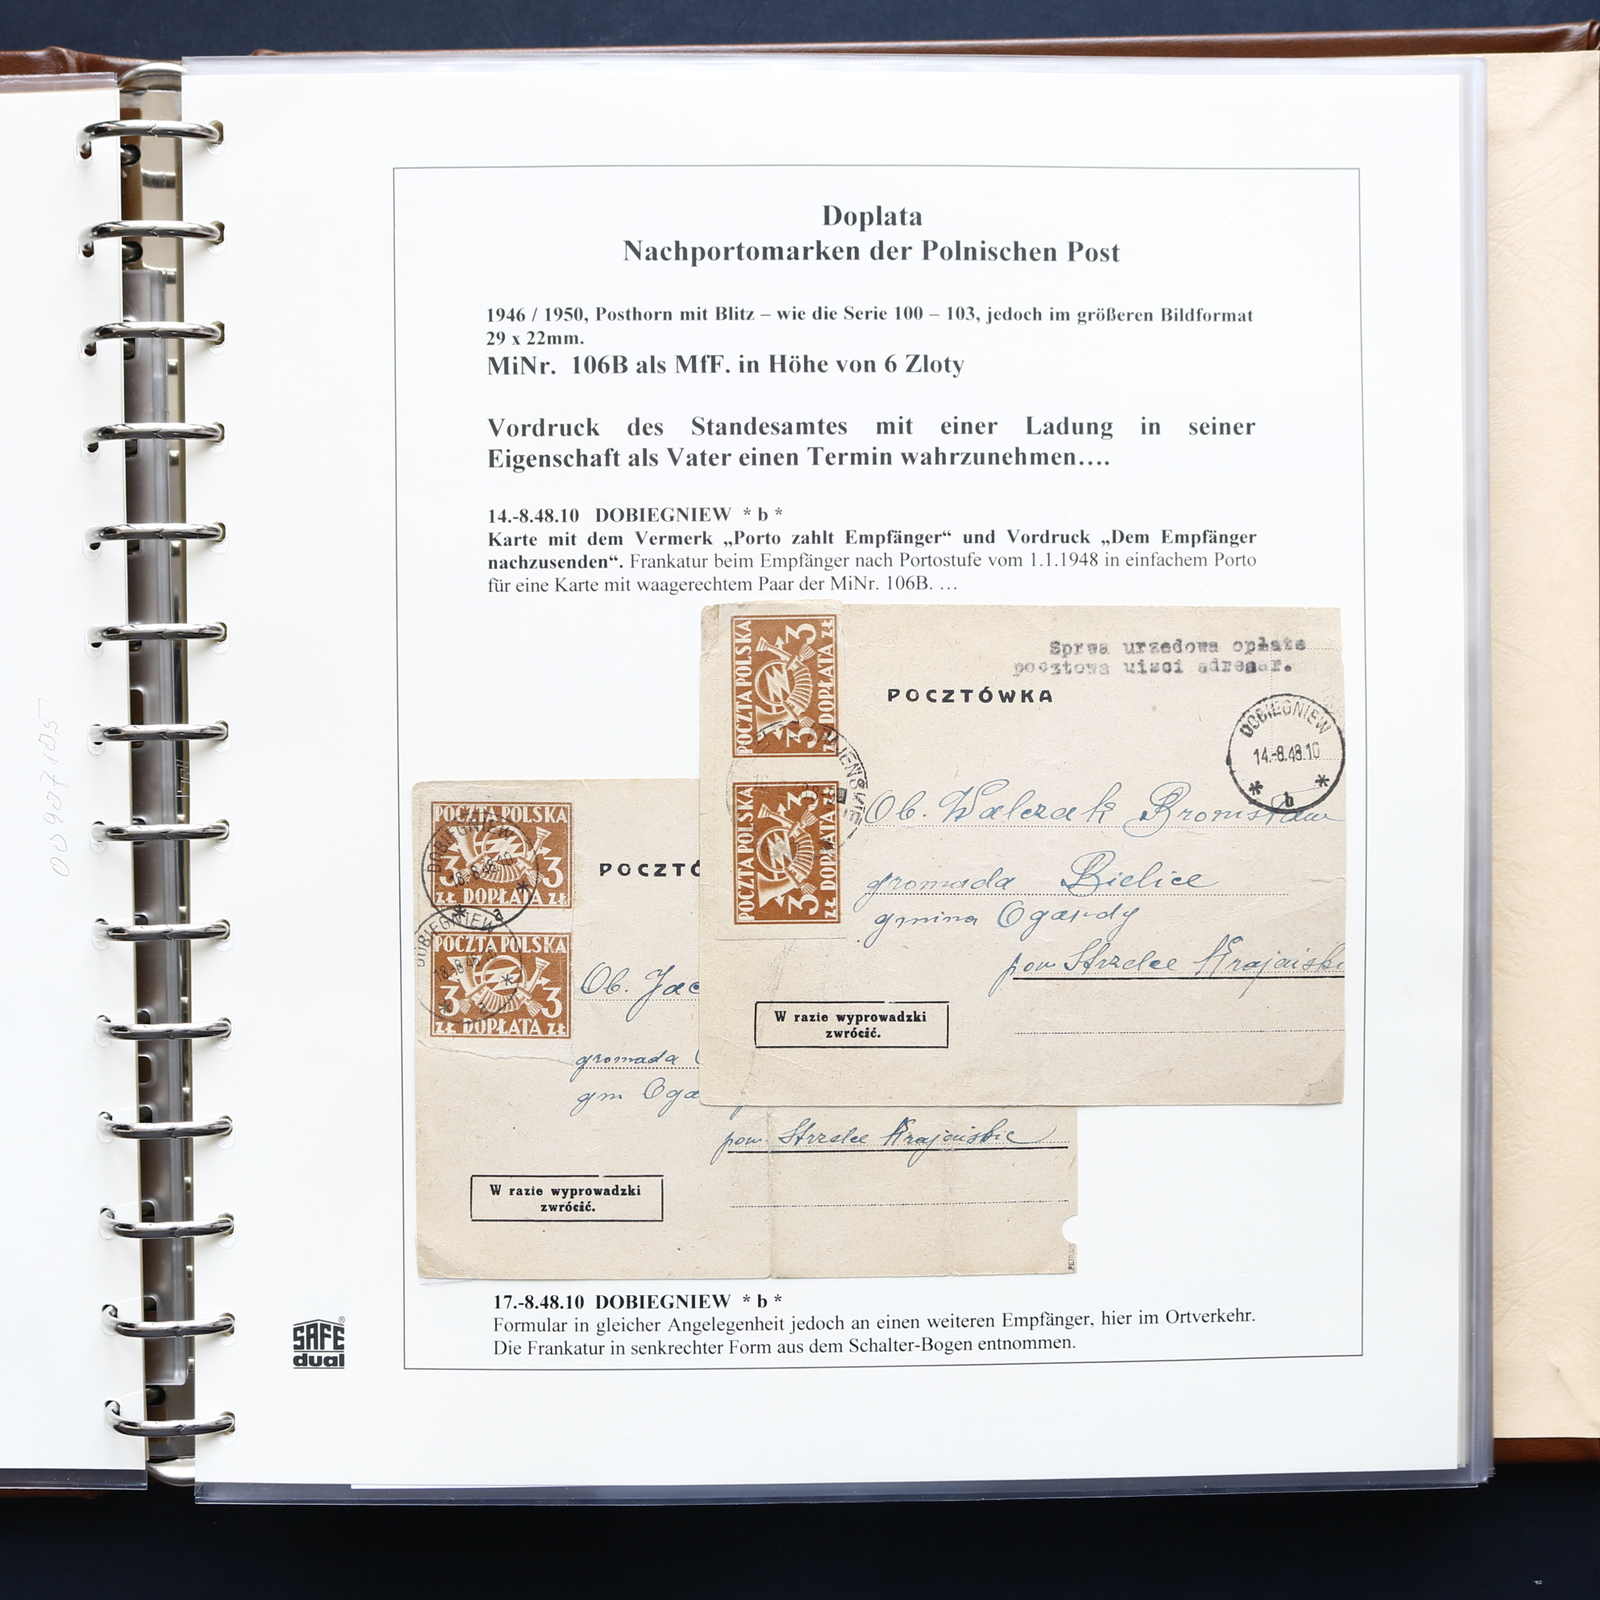 Doplata
Nachportomarken der Polnischen Post
1946 / 1950, Posthorn mit Blitz – wie die Serie 100 – 103, jedoch im größeren Bildformat
29 x 22mm.
MiNr. 106B als MfF. in Höhe von 6 Zloty
Vordruck des Standesamtes mit einer Ladung in seiner
Eigenschaft als Vater einen Termin wahrzunehmen….
14.-8.48.10 DOBIEGNIEW * b *
Karte mit dem Vermerk „Porto zahlt Empfänger“ und Vordruck „Dem Empfänger
nachzusenden“. Frankatur beim Empfänger nach Portostufe vom 1.1.1948 in einfachem Porto
für eine Karte mit waagerechtem Paar der MiNr. 106B. …
POCZTA POLSKA
3 3
DOPŁATA ZŁ
POCZTA POLSKA
3 3
DOPŁATA ZŁ
Sprwa urzedowa opłate
pocztowa uisci adresar.
POCZTÓWKA
DOBIEGNIEW
14.-8.48.10
* b *
Ob. Walczak Bronisław
gromada Bielice
gmina Ogardy
pow Strzelce Krajeńskie
W razie wyprowadzki
zwrócić.
POCZTA POLSKA
3 3
ZŁ DOPŁATA ZŁ
DOBIEGNIEW
18.-8.48.10
* a *
POCZTA POLSKA
3 3
ZŁ DOPŁATA ZŁ
DOBIEGNIEW
POCZTÓ
Ob. Jac
gromada
gm Oga
pow. Strzelce Krajeńskie
W razie wyprowadzki
zwrócić.
17.-8.48.10 DOBIEGNIEW * b *
Formular in gleicher Angelegenheit jedoch an einen weiteren Empfänger, hier im Ortverkehr.
Die Frankatur in senkrechter Form aus dem Schalter-Bogen entnommen.
SAFE®
dual